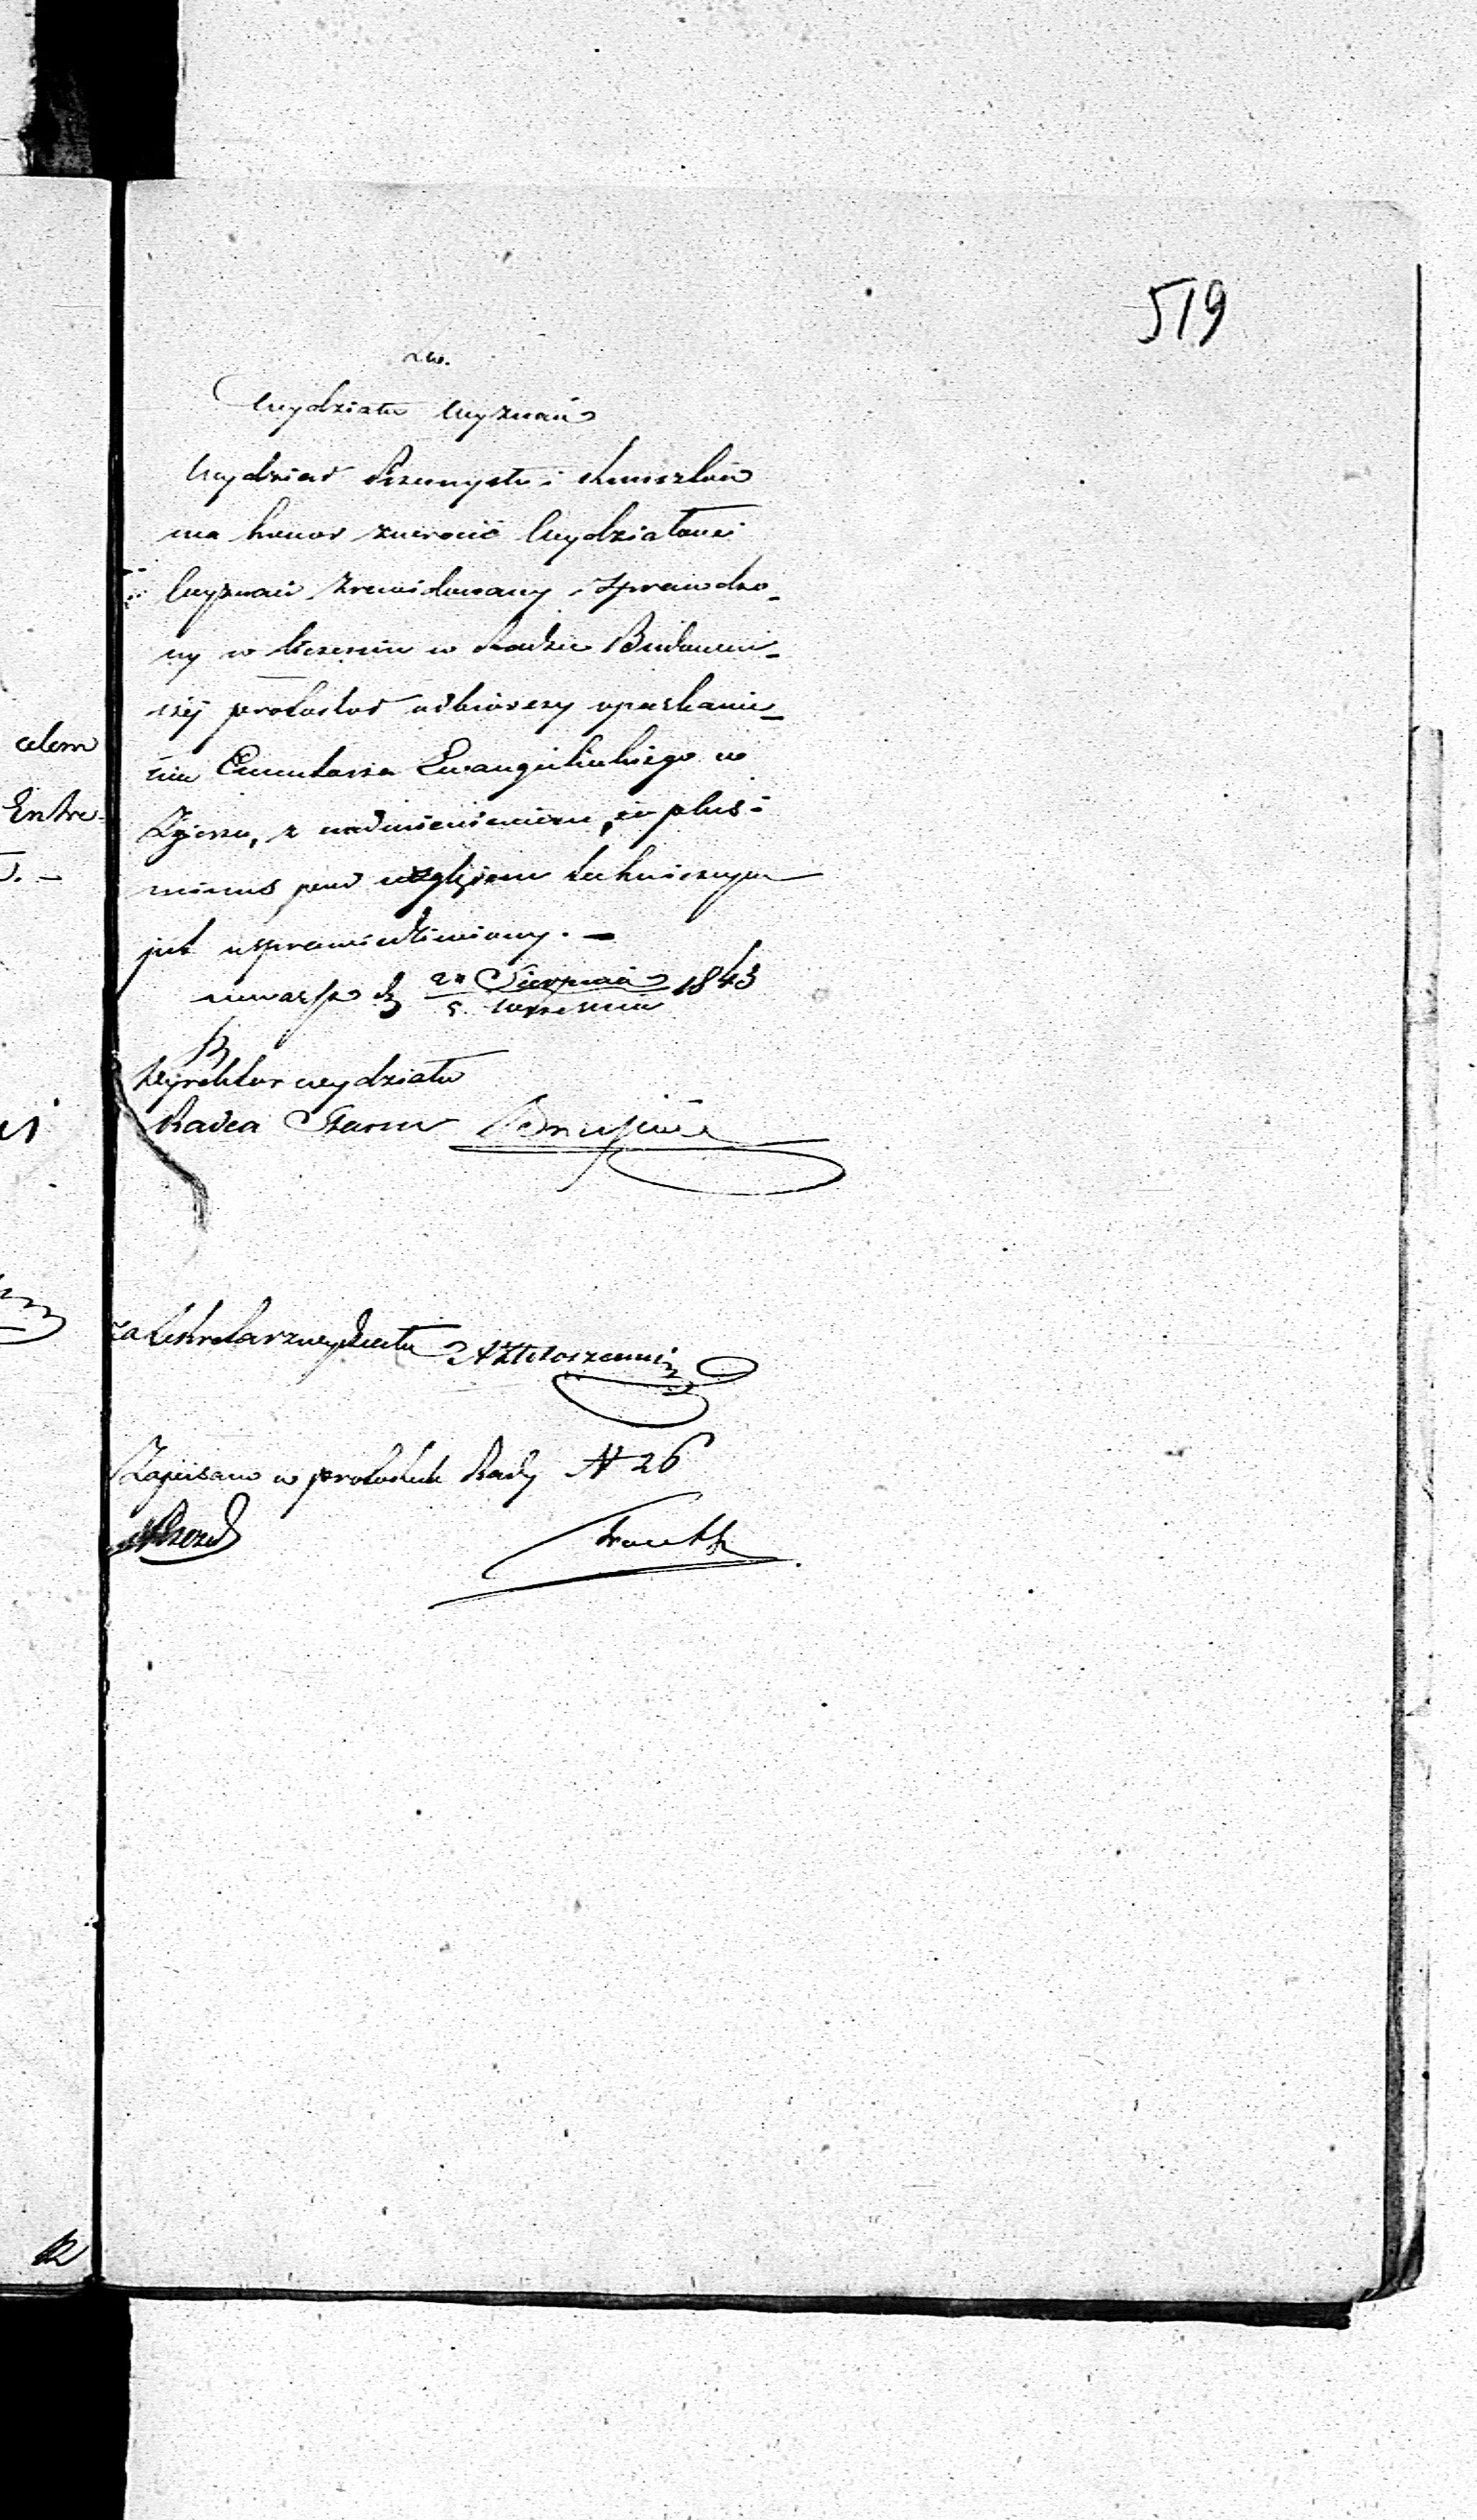 519
Wydziału Wyznań
Wydział Przemysłu i Kunsztów
ma honor zwrócić Wydziałowi
Wyznań zrewidowany i sprawdzo-
ny w liczeniu w Radzie Budowni-
czéj protokół odbiorczy oparkanie-
nia Cmentarza Ewangelickiego w
Zgierzu, z nadmienieniem, że plus i
minus pod względem technicznym
jest usprawiedliwiony. —
w Warsz d 24 Sierpnia 1843
5. Września
Dyrektor Wydziału
Radca Stanu
za Sekretarz Wydziału
Zapisano w protokule Rady N 26
celem
Entre-